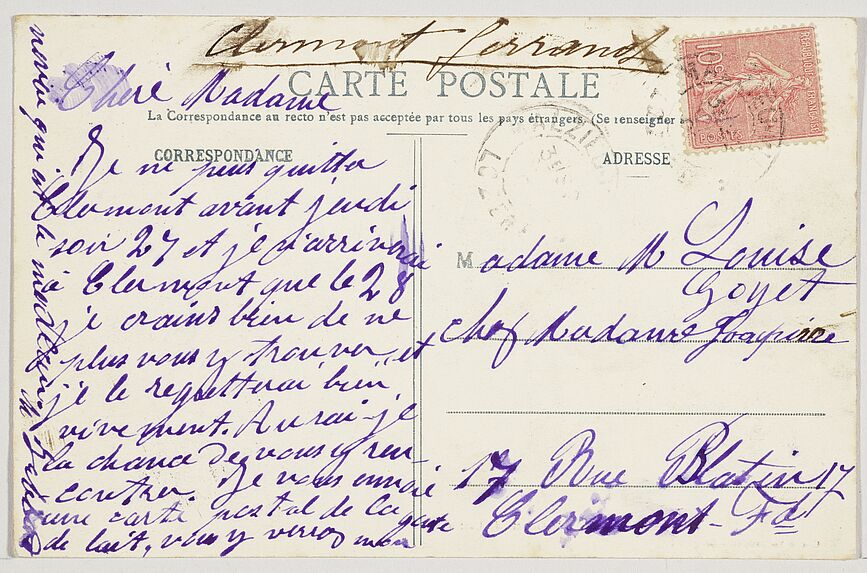 Clermont Ferrand
CARTE POSTALE
La Correspondance au recto n'est pas acceptée par tous les pays étrangers. (Se renseigner
CORRESPONDANCE
ADRESSE
Chère Madame
Je ne puis quitter
Clermont avant jeudi
soir 27 et je n'arriverai
à Clermont que le 28
je crains bien de ne
plus vous y trouver et
je le regretterai bien
vivement. Aurai-je
la chance de vous y ren-
contrer. Je vous envoie
une carte postal de la gare
de lait, vous y verrez mon
novie qui est le
REPUBLIQUE FRANCAISE
10c
POSTES
Madame M Louise
Goyet
chez Madame
17 Rue Blatin 17
Clermont-Fd